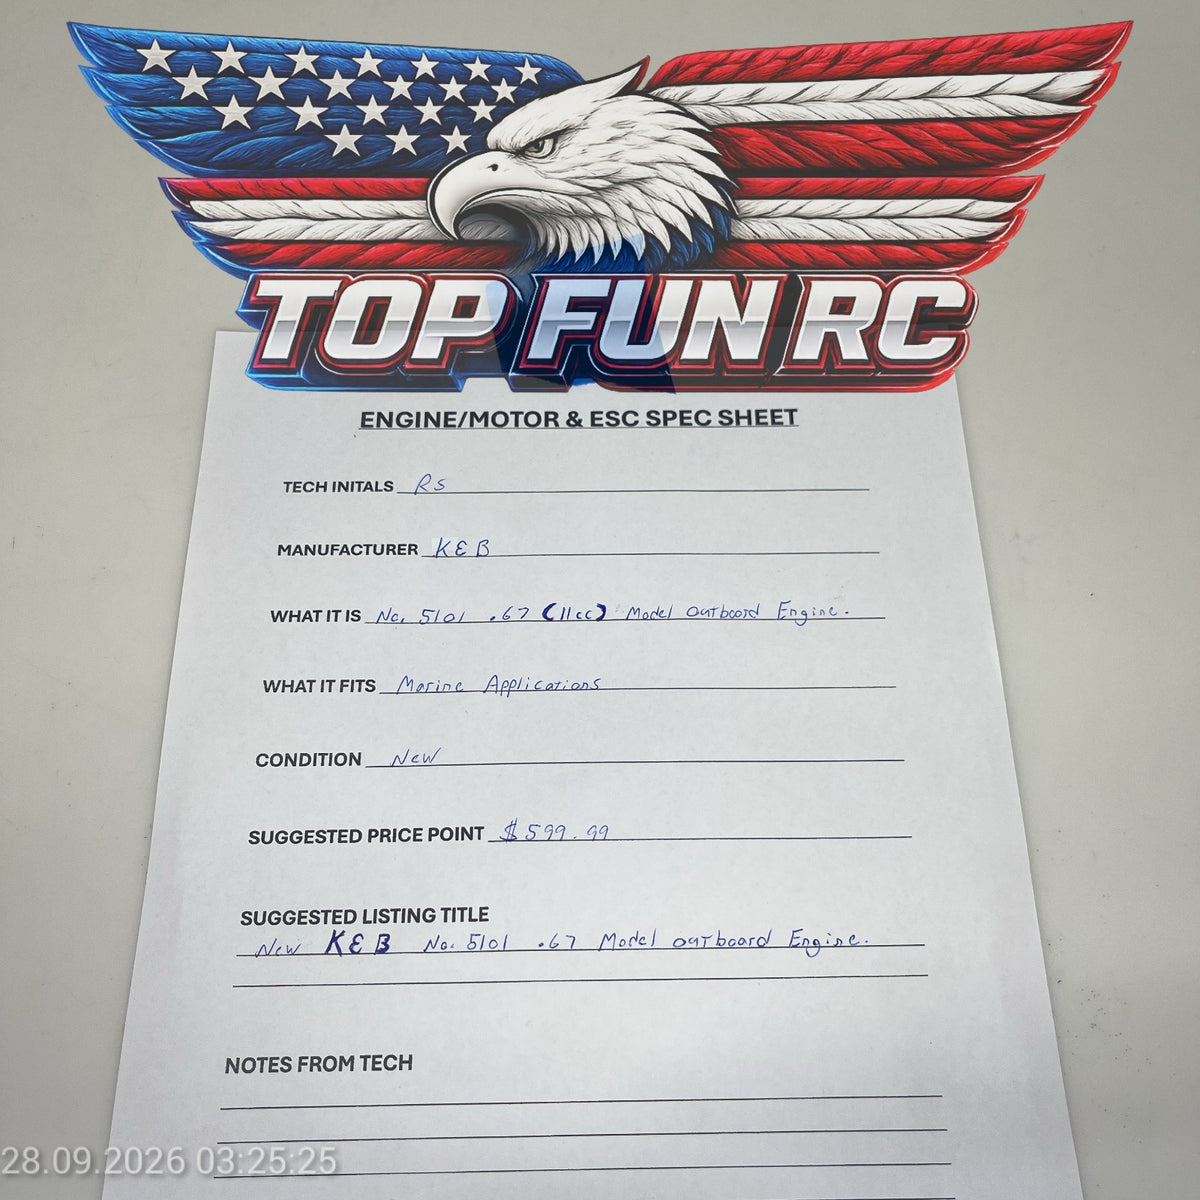 TOP FUN RC
ENGINE/MOTOR & ESC SPEC SHEET
TECH INITALS RS
MANUFACTURER K&B
WHAT IT IS No. 5101 .67 (11cc) Model Outboard Engine.
WHAT IT FITS Marine Applications
CONDITION New
SUGGESTED PRICE POINT $599.99
SUGGESTED LISTING TITLE
New K&B No. 5101 .67 Model Outboard Engine.
NOTES FROM TECH
28.09.2026 03:25:25